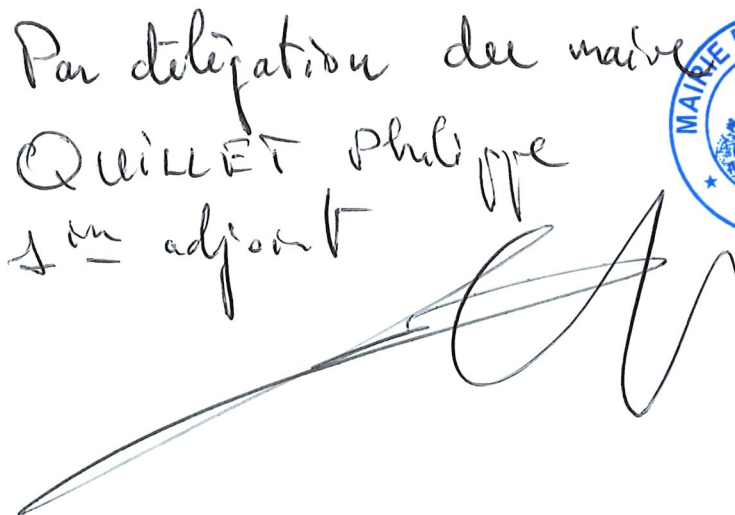 Par délégation du maire
QUILLET Philippe
1er adjoint
MAIRIE